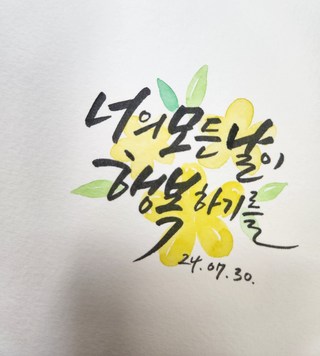 너의 모든 날이
행복하기를
24.07.30.